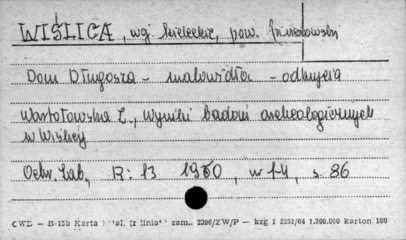 WIŚLICA, woj. kieleckie, pow.
Dom Długosza - malowidła - odkrycia
Wartołowska Z., Wyniki badań archeologicznych
w Wiślicy
Ochr. Zab., R: 13 1960, nr 1-4, s. 86
CWD — B-15b Karta zam. 2396/ZW/P — kzg 1 2231/64 1.200.000 karton 180